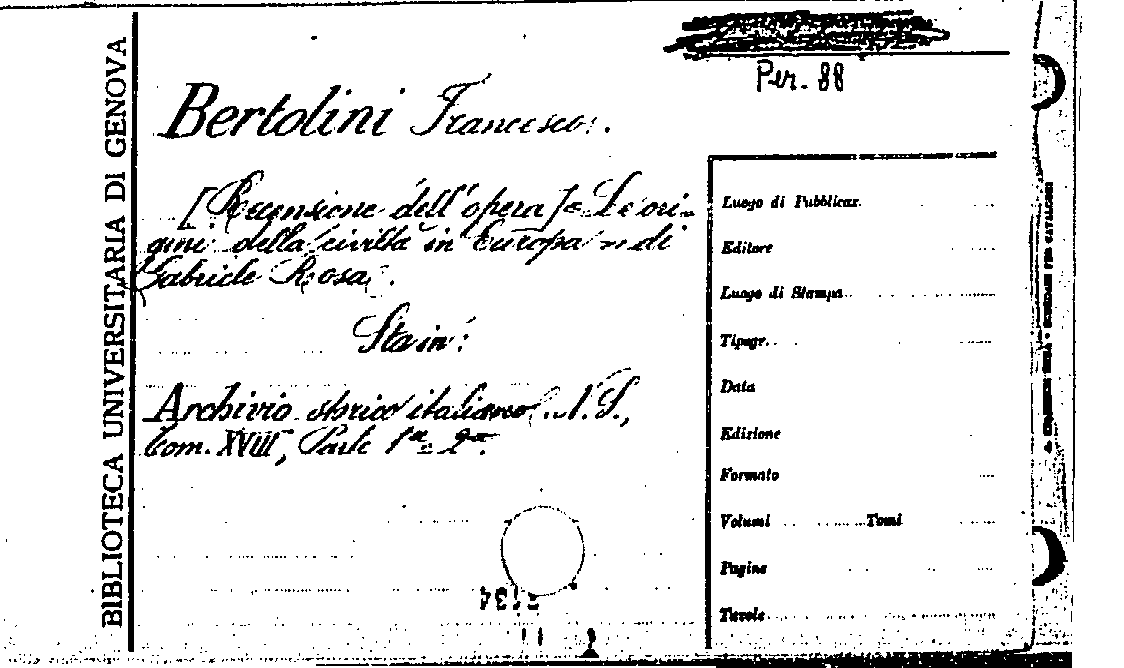 BIBLIOTECA UNIVERSITARIA DI GENOVA
Per. 88
Bertolini Francesco.
[Recensione dell'opera] = Le ori-
gini della civiltà in Europa " di
Gabriele Rosa.
Sta in:
Archivio storico italiano, N. S.,
tom. XVIII, Parte 1ª = 2ª.
Luogo di Pubblicaz.
Editore
Luogo di Stampa
Tipogr.
Data
Edizione
Formato
Volumi Tomi
Pagine
Tavole